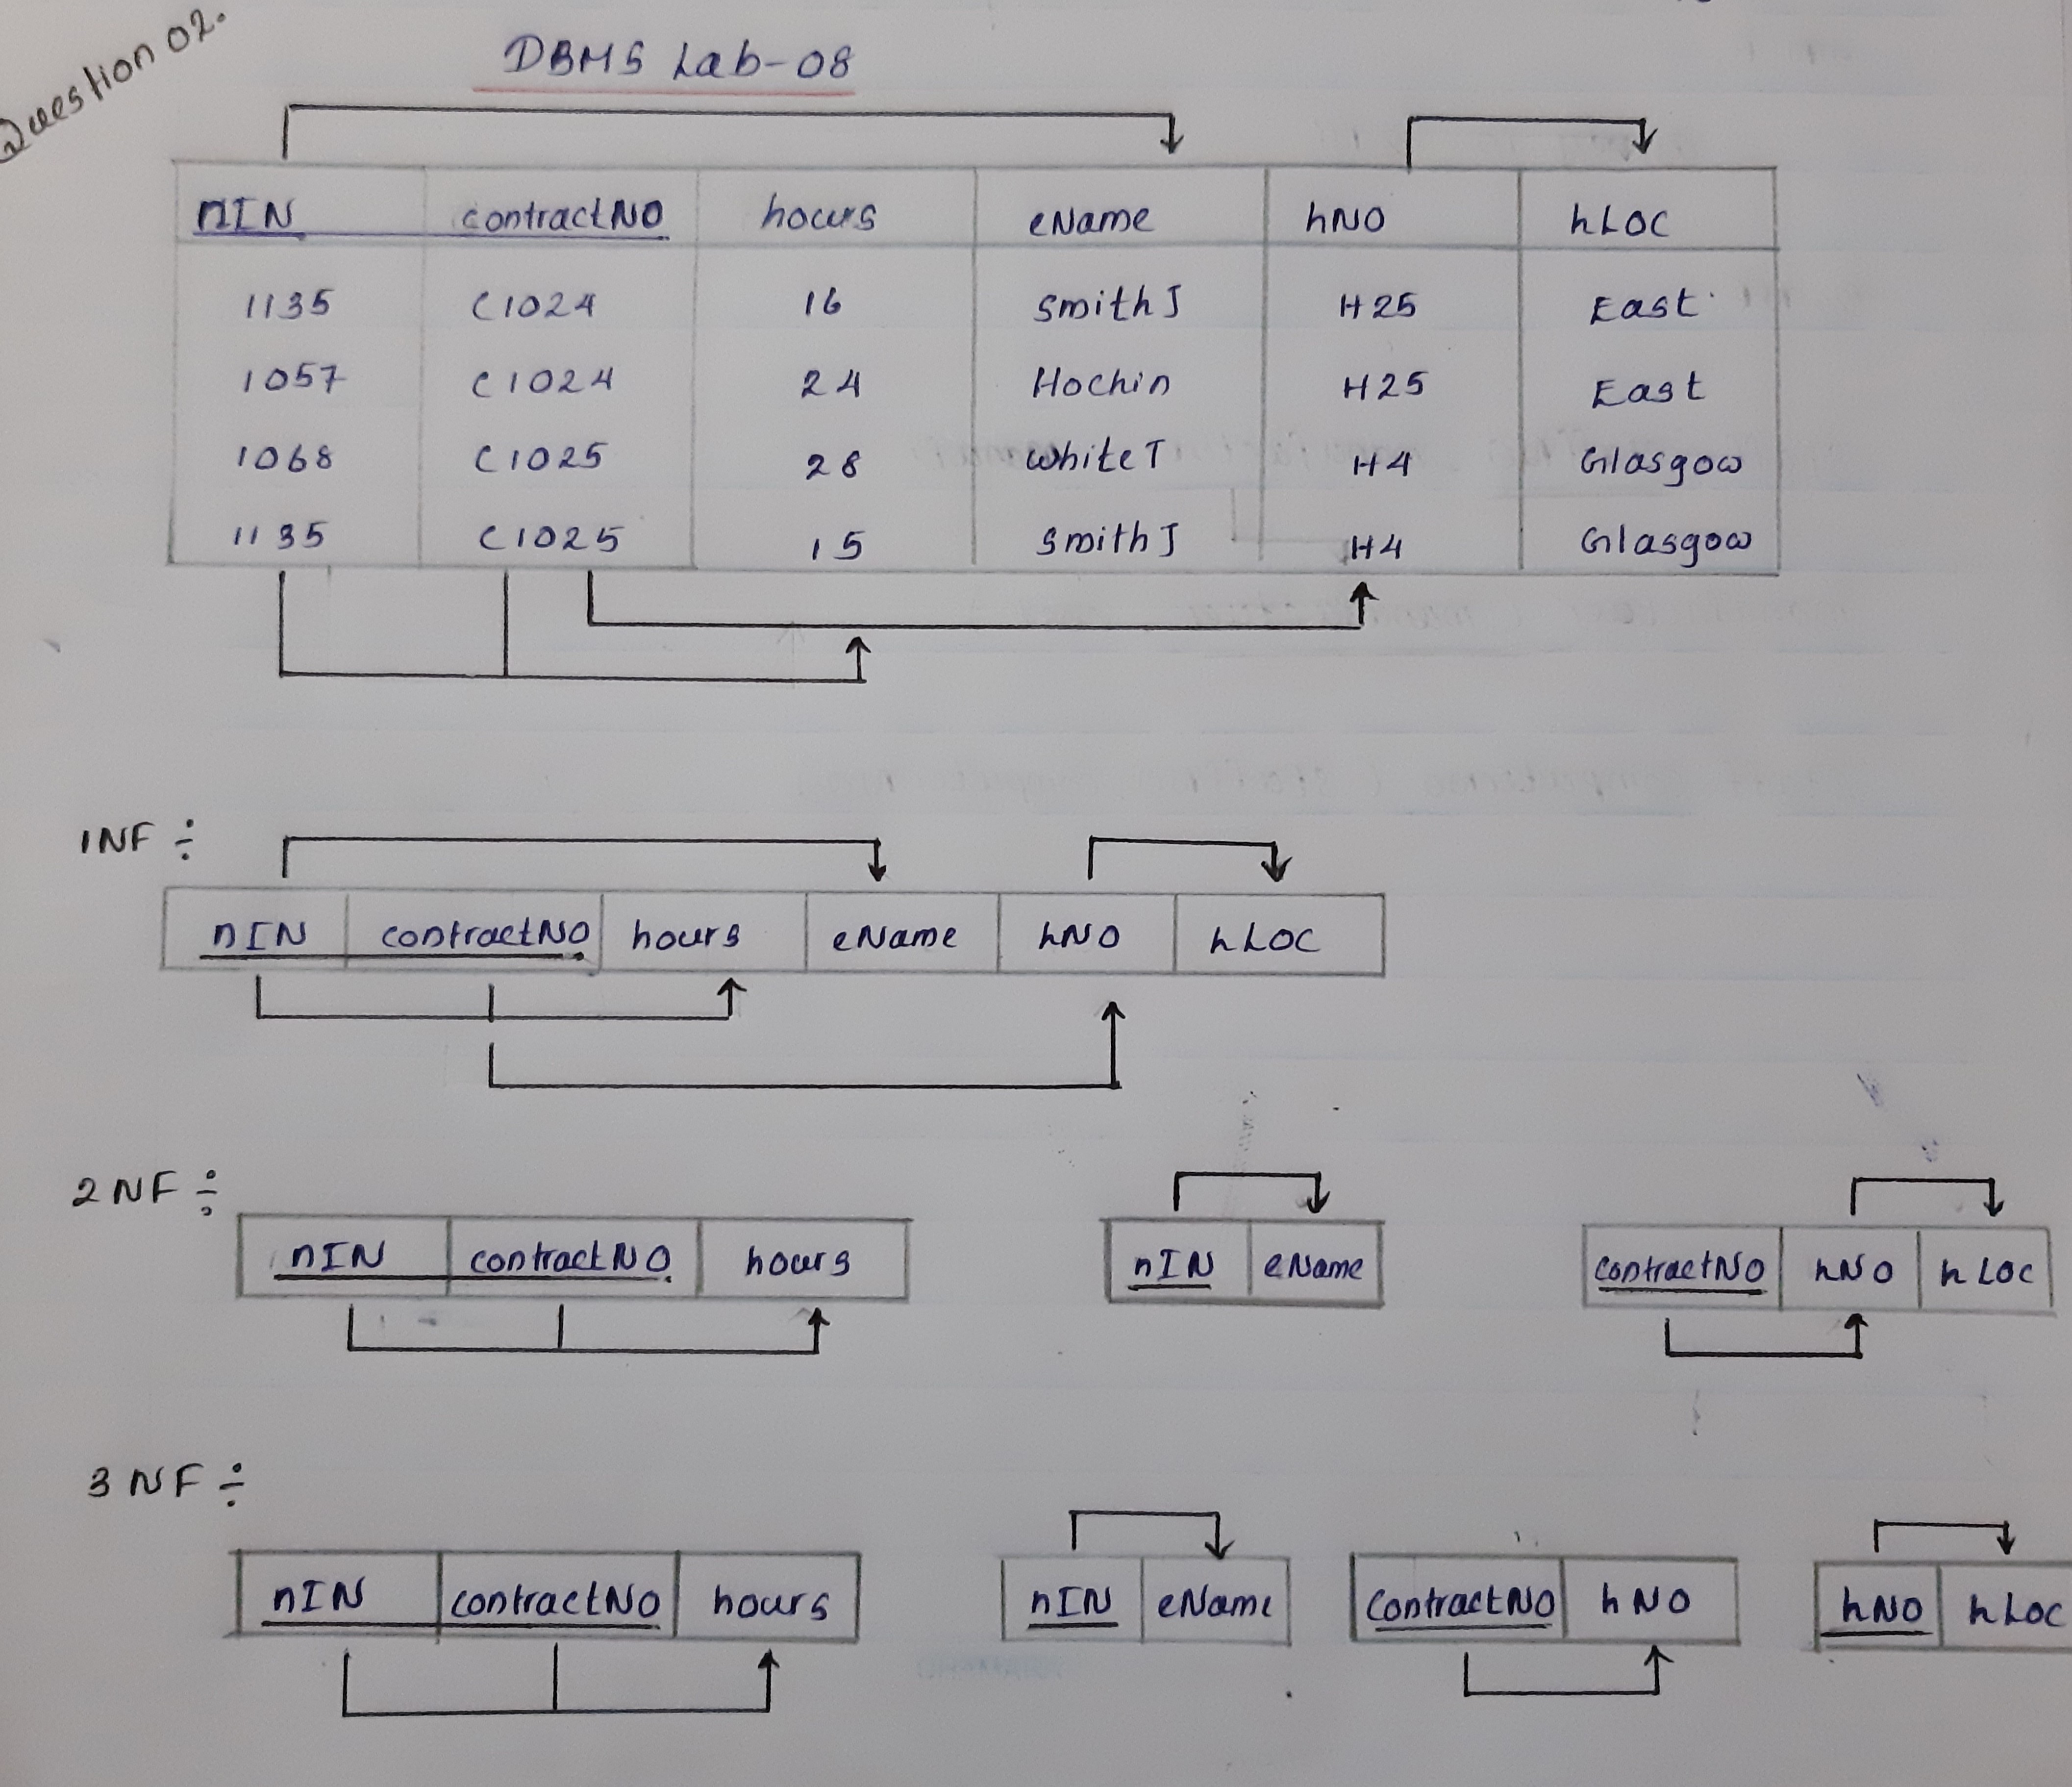 Question 02.
DBMS Lab-08
nIN contractNO hours eName hNO hLOC
1135 C1024 16 SmithJ H25 East
1057 C1024 24 Hochin H25 East
1068 C1025 28 WhiteT H4 Glasgow
1135 C1025 15 SmithJ H4 Glasgow
1NF ÷
nIN contractNO hours eName hNO hLOC
2NF ÷
nIN contractNO hours nIN eName contractNO hNO hLOC
3NF ÷
nIN contractNO hours nIN eName ContractNO hNO hNO hLOC